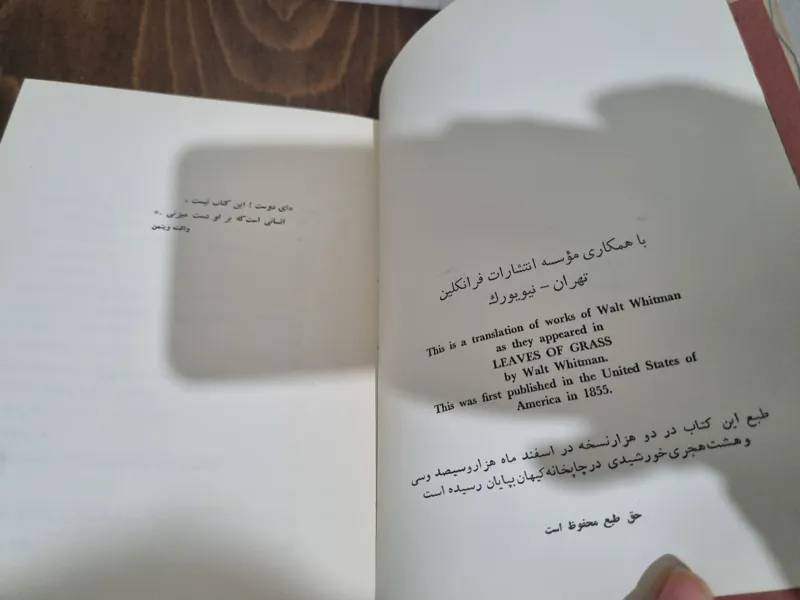 با همکاری مؤسسه انتشارات فرانکلین
تهران – نیویورك
This is a translation of works of Walt Whitman
as they appeared in
LEAVES OF GRASS
by Walt Whitman.
This was first published in the United States of
America in 1855.
طبع این کتاب در دو هزارنسخه در اسفند ماه هزاروسیصد وسی
وهشت‌هجری‌خورشیدی درچاپخانه‌کیهان‌بپایان رسیده است
حق طبع محفوظ است
«ای دوست ! این کتاب نیست ،
انسانی است‌که بر او دست میزنی .»
والت ویتمن